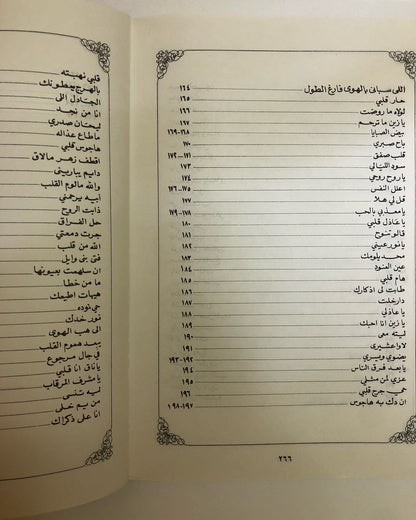 اللي سباني بالهوى فارغ المطول ١٦٤
حار قلبي ١٦٥
لولاه ما روضت ١٦٦
يا زين ما ترحم ١٦٧
بيض الصبايا ١٦٨-١٦٩
باح صبري ١٧٠
قلب صفق ١٧١-١٧٢
سود الليالي ١٧٣
يا روح روحي ١٧٤
اعلل النفس ١٧٥-١٧٦
قل لي هلا ١٧٧
يا معذبي بالحب ١٧٨-١٧٩
يا عاذل قلبي ١٨٠
قالو تنوح ١٨١
يا نور عيني ١٨٢
محمد يلومك ١٨٣
عين العنود ١٨٤
هام قلبي ١٨٥
طابت لي اذكارك ١٨٦
دار خلت ١٨٧
يا عاذلي ١٨٨
يا زين انا احبك ١٨٩
ليته معي ١٩٠
لاوا عشيري ١٩١
وميري ١٩٢-١٩٣
يا بعد فرق الناس ١٩٤
عزي لمن مثلي ١٩٥
جرح قلبي ١٩٦
ان دك به هاجوس ١٩٧-١٩٨
٢٦٦
قلبي نهبته
بالهرج يعطونك
الجادل اللي
انا من نجد
ليحان صدري
ما طاع عذاله
هاجوس قلبي
اقطف زهر مالاق
دايم يباريني
والله مالوم القلب
أبيه يرحمني
ذابت الروح
حل الفراق
جرت دمعتي
الله من قلب
فتى بني وايل
ان سلهمت بعيونها
ما من خطا
هيهات اطيعك
حي نوده
نور خدك
الى هب الهوى
يبعد هموم القلب
في جال مرجوع
يا ناق انا قلبي
يا مشرف المرقاب
ليه تنسى
من يم خلي
انا على ذكراك